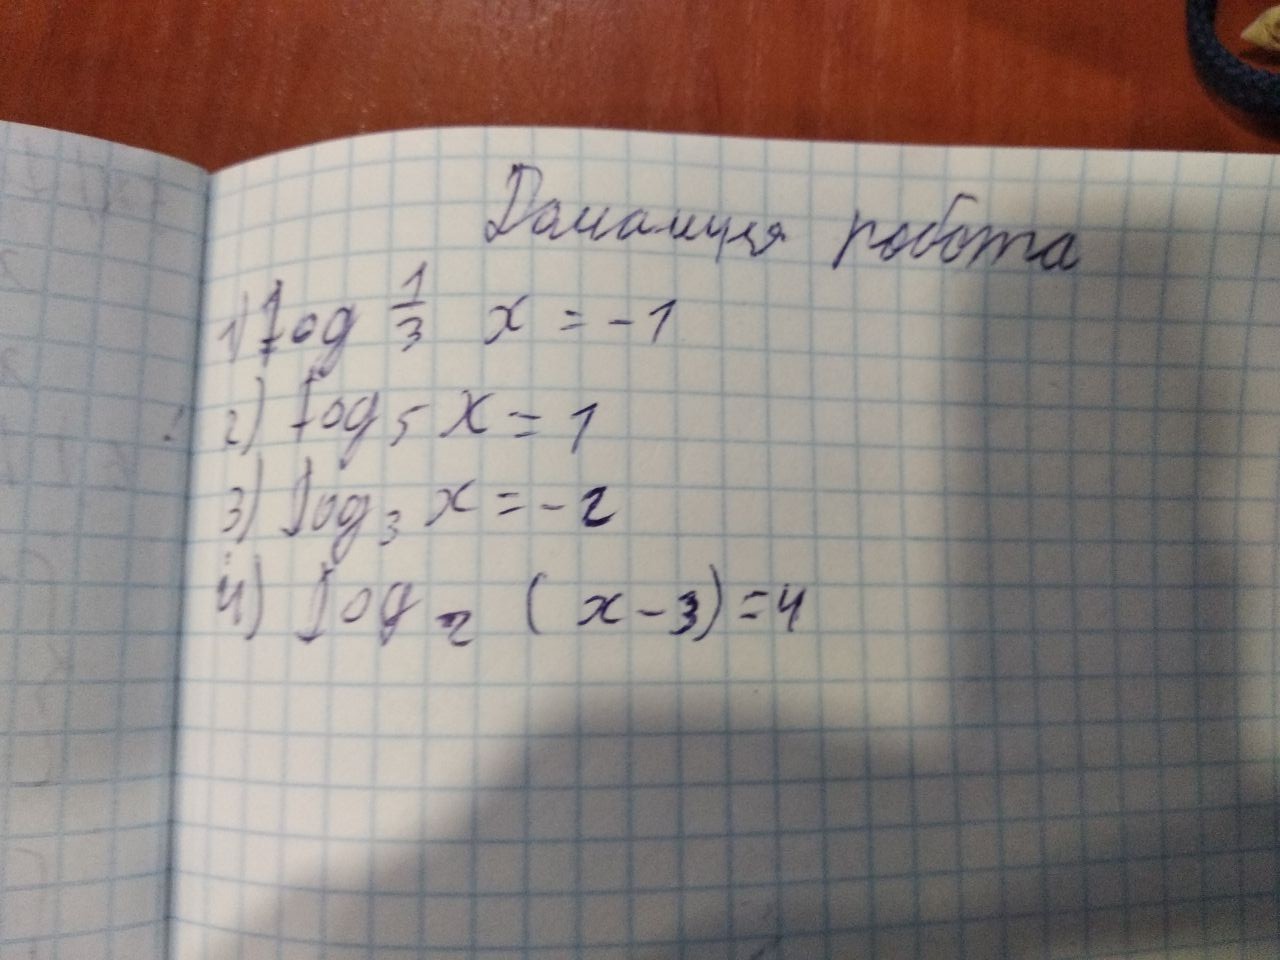 Домашня робота
1) log 1/3 x = -1
2) log₅ x = 1
3) log₃ x = -2
4) log₂ (x - 3) = 4